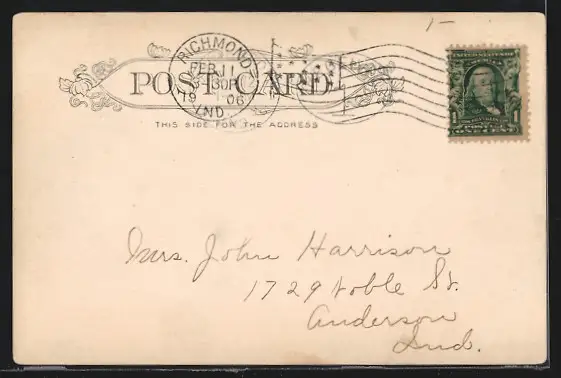 1-
RICHMOND
FEB 11
30P
1906
IND.
POST CARD
THIS SIDE FOR THE ADDRESS
1 POSTAGE 1
ONE CENT
Mrs. John Harrison
1729 Noble St.
Anderson
Ind.